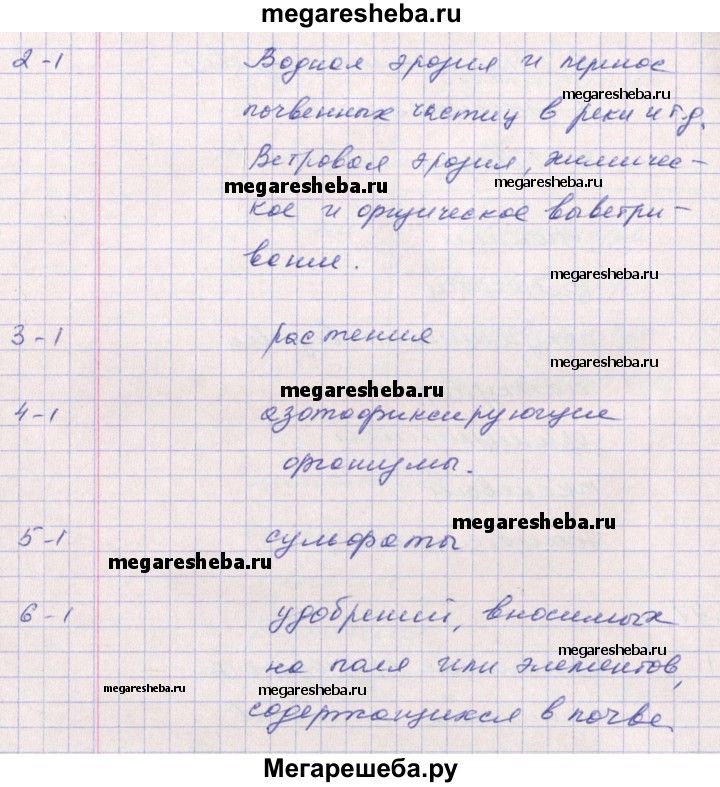 megaresheba.ru
2-1 Водная эрозия и перенос
megaresheba.ru
почвенных частиц в реки и т.д.
Ветровая эрозия, химичес-
megaresheba.ru
megaresheba.ru
кое и физическое выветри-
вание.
megaresheba.ru
3-1 растения
megaresheba.ru
megaresheba.ru
4-1 азотофиксирующие
организмы.
megaresheba.ru
5-1 сульфаты
megaresheba.ru
6-1 удобрений, вносимых
megaresheba.ru
на поля или элементов,
megaresheba.ru
megaresheba.ru
содержащихся в почве.
Мегарешеба.ру